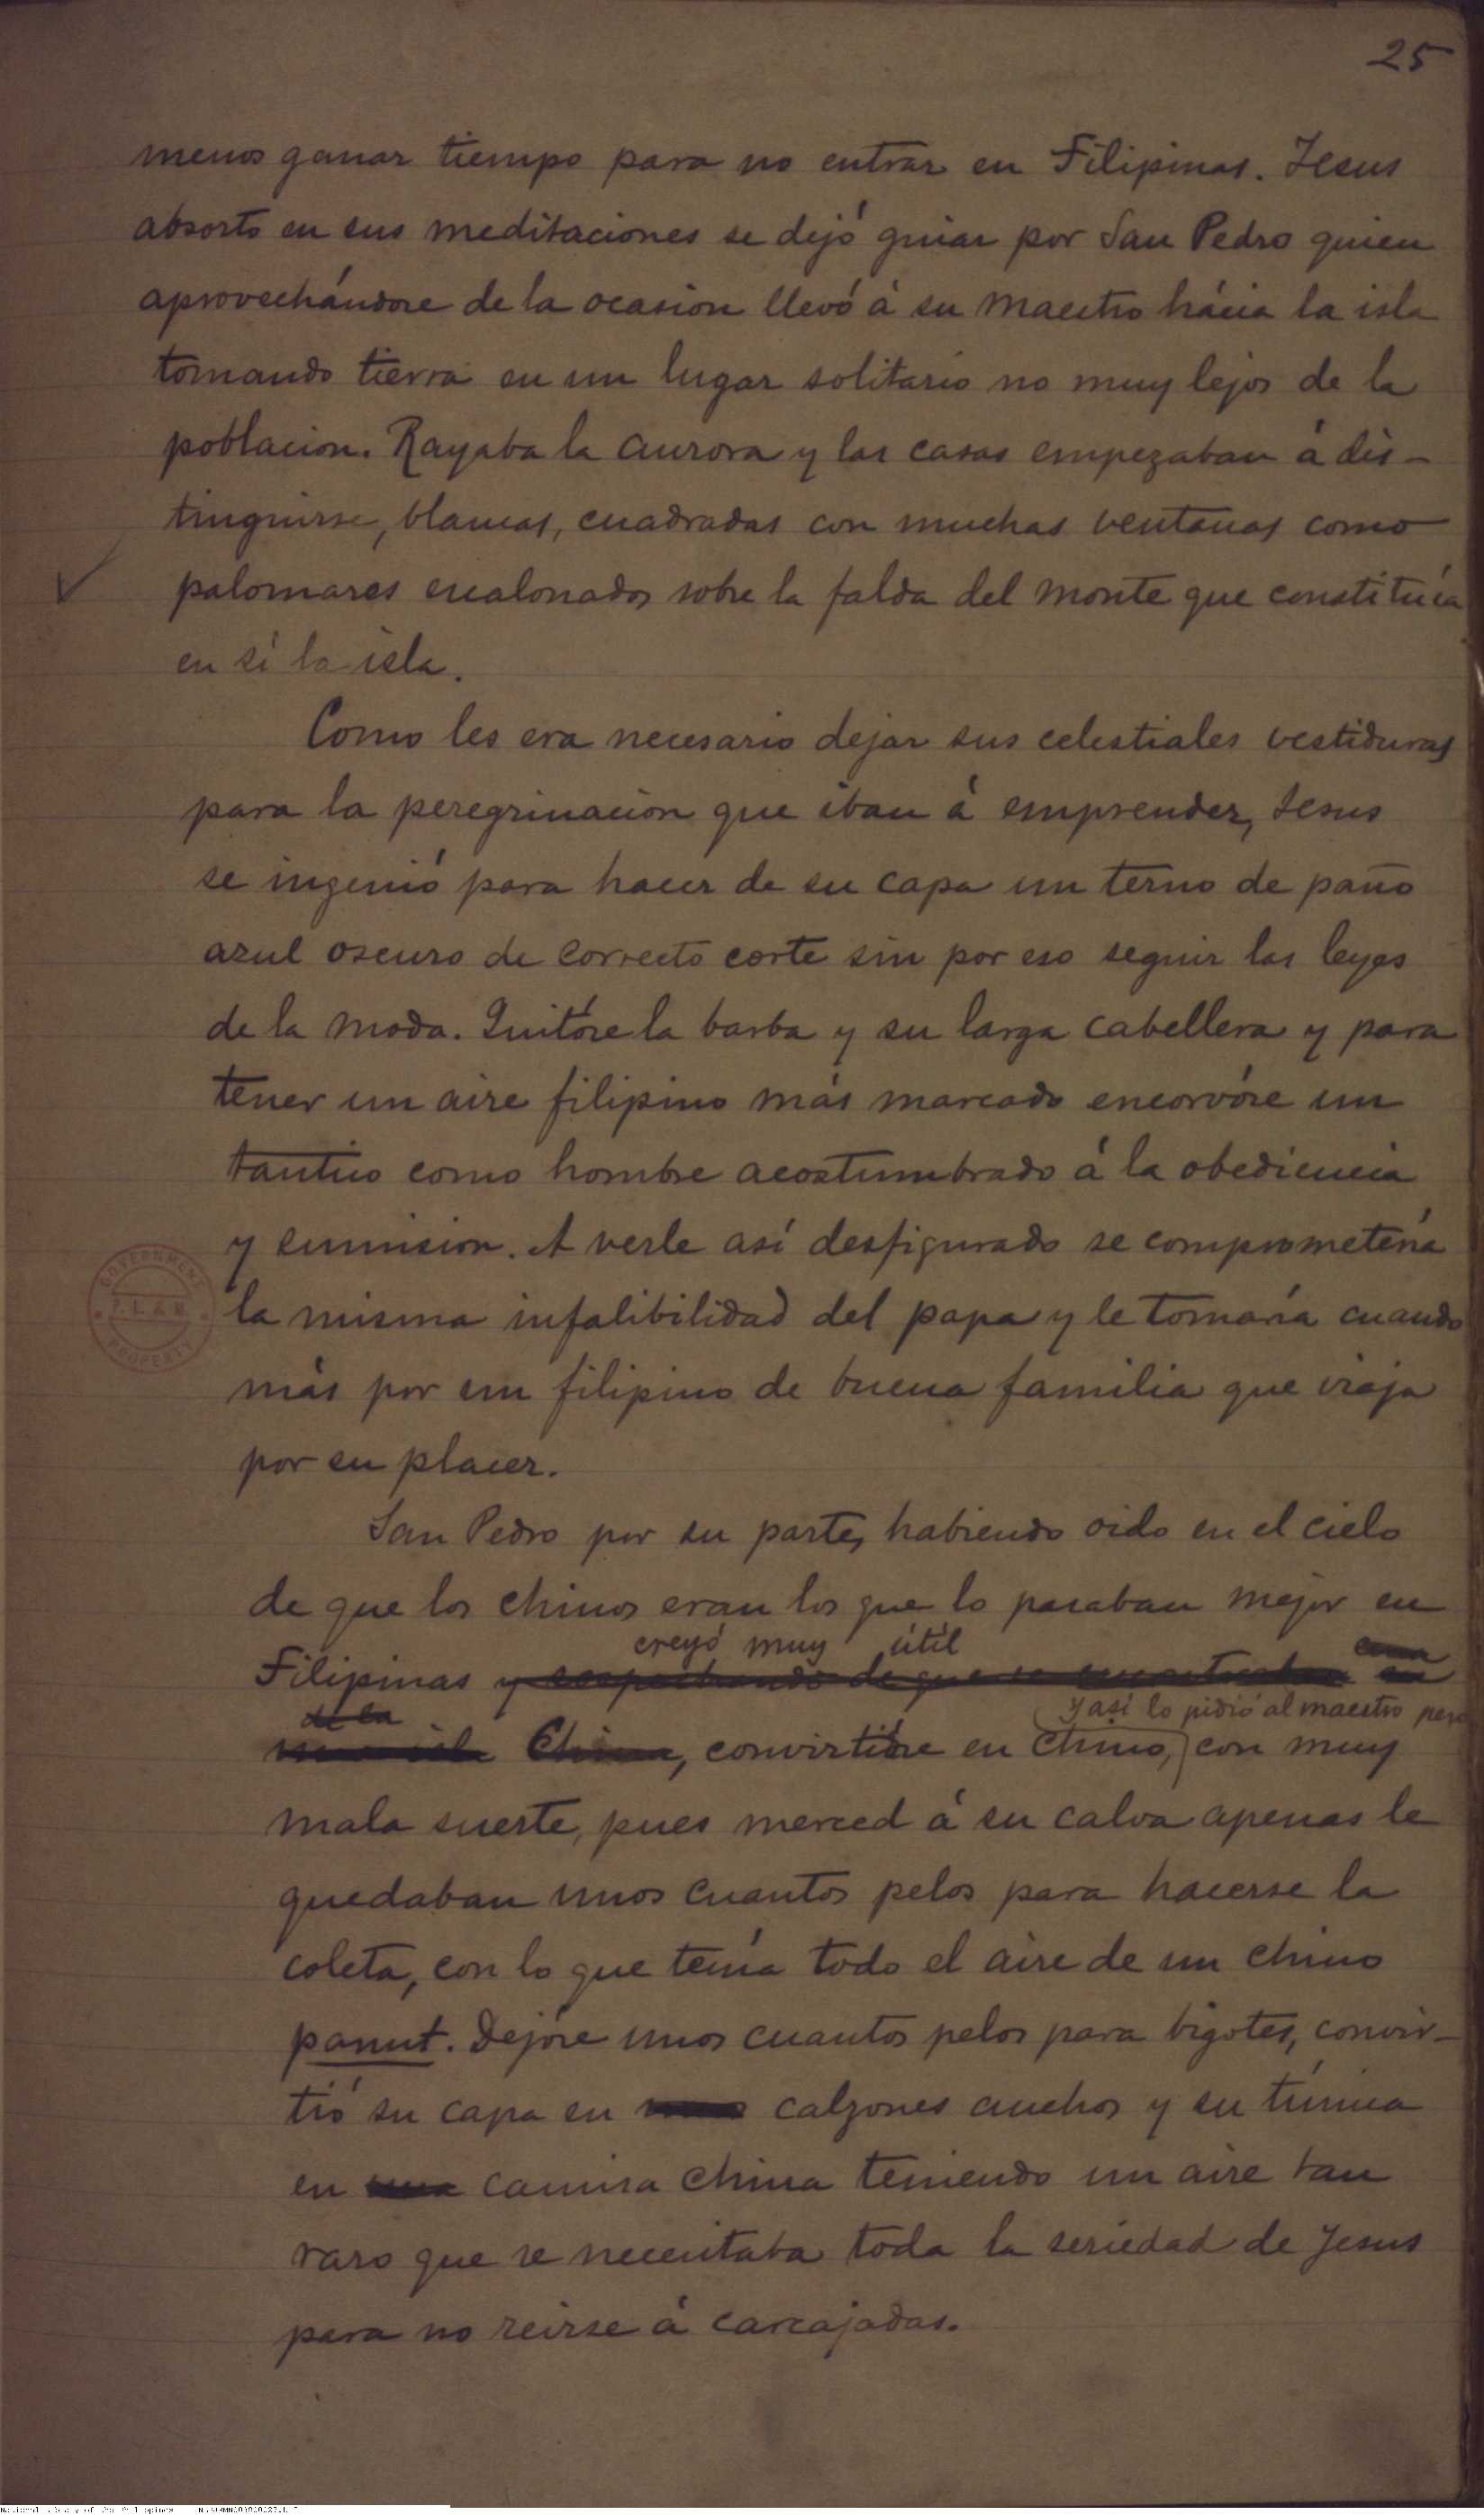 25
menos ganar tiempo para no entrar en Filipinas. Jesus
absorto en sus meditaciones se dejó guiar por San Pedro quien
aprovechándose de la ocasion llevó á su maestro hácia la isla
tomando tierra en un lugar solitario no muy lejos de la
poblacion. Rayaba la aurora y las casas empezaban á dis-
tinguirse, blancas, cuadradas con muchas ventanas como
palomares escalonados sobre la falda del monte que constituía
en sí la isla.
Como les era necesario dejar sus celestiales vestiduras
para la peregrinacion que iban á emprender, Jesus
se ingenió para hacer de su capa un terno de paño
azul oscuro de correcto corte sin por eso seguir las leyes
de la moda. Quitóse la barba y su larga cabellera y para
tener un aire filipino más marcado encorvóse un
tantico como hombre acostumbrado á la obediencia
y sumision. A verle así desfigurado se comprometería
GOVERNMENT
P. L. & M.
PROPERTY
la misma infalibilidad del papa y le tomaría cuando
más por un filipino de buena familia que viaja
por su placer.
San Pedro por su parte, habiendo oido en el cielo
de que los chinos eran los que lo pasaban mejor en
creyó muy útil
Filipinas y sospechando de que se encontraban en
de la
y así lo pidió al maestro pero
China, convirtióse en chino, con muy
mala suerte, pues merced á su calva apenas le
quedaban unos cuantos pelos para hacerse la
coleta, con lo que tenía todo el aire de un chino
panut. Dejóse unos cuantos pelos para bigotes, convir-
tió su capa en calzones anchos y su túnica
en camisa china teniendo un aire tan
raro que se necesitaba toda la seriedad de Jesus
para no reirse á carcajadas.
National Library of the Philippines